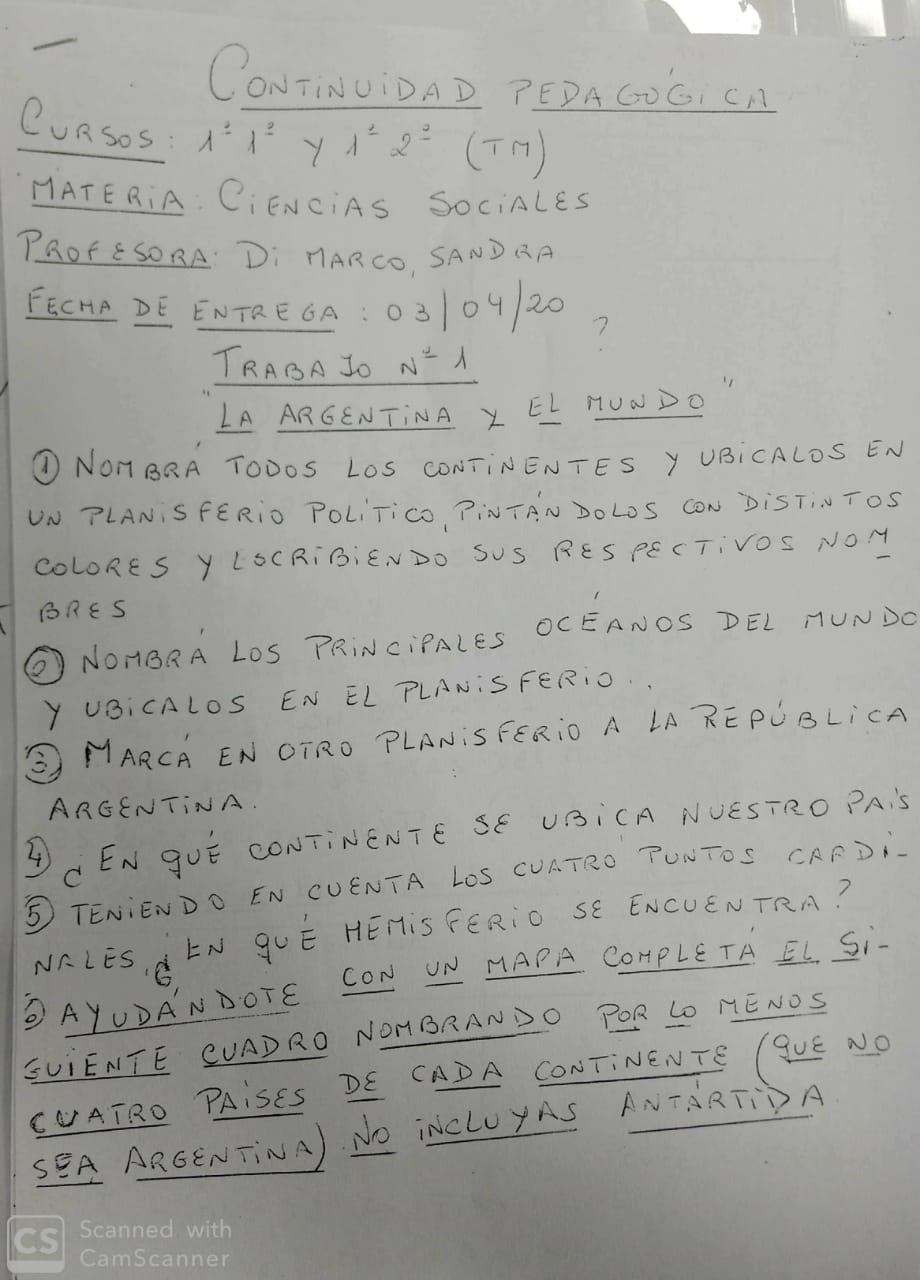 CONTINUIDAD PEDAGÓGICA
CURSOS: 1º 1º Y 1º 2º (TM)
MATERIA: CIENCIAS SOCIALES
PROFESORA: DI MARCO, SANDRA
FECHA DE ENTREGA: 03/04/20
?
TRABAJO Nº 1
"LA ARGENTINA Y EL MUNDO"
① NOMBRÁ TODOS LOS CONTINENTES Y UBICALOS EN
UN PLANISFERIO POLÍTICO, PINTÁNDOLOS CON DISTINTOS
COLORES Y ESCRIBIENDO SUS RESPECTIVOS NOM
BRES
② NOMBRÁ LOS PRINCIPALES OCÉANOS DEL MUNDO
Y UBICALOS EN EL PLANISFERIO..
③ MARCÁ EN OTRO PLANISFERIO A LA REPÚBLICA
ARGENTINA.
④ ¿EN QUÉ CONTINENTE SE UBICA NUESTRO PAÍS
⑤ TENIENDO EN CUENTA LOS CUATRO PUNTOS CARDI-
NALES, ¿EN QUÉ HEMISFERIO SE ENCUENTRA?
⑥ AYUDÁNDOTE CON UN MAPA COMPLETÁ EL SI-
GUIENTE CUADRO NOMBRANDO POR LO MENOS
CUATRO PAÍSES DE CADA CONTINENTE (QUE NO
SEA ARGENTINA) NO INCLUYAS ANTÁRTIDA.
CS Scanned with
CamScanner